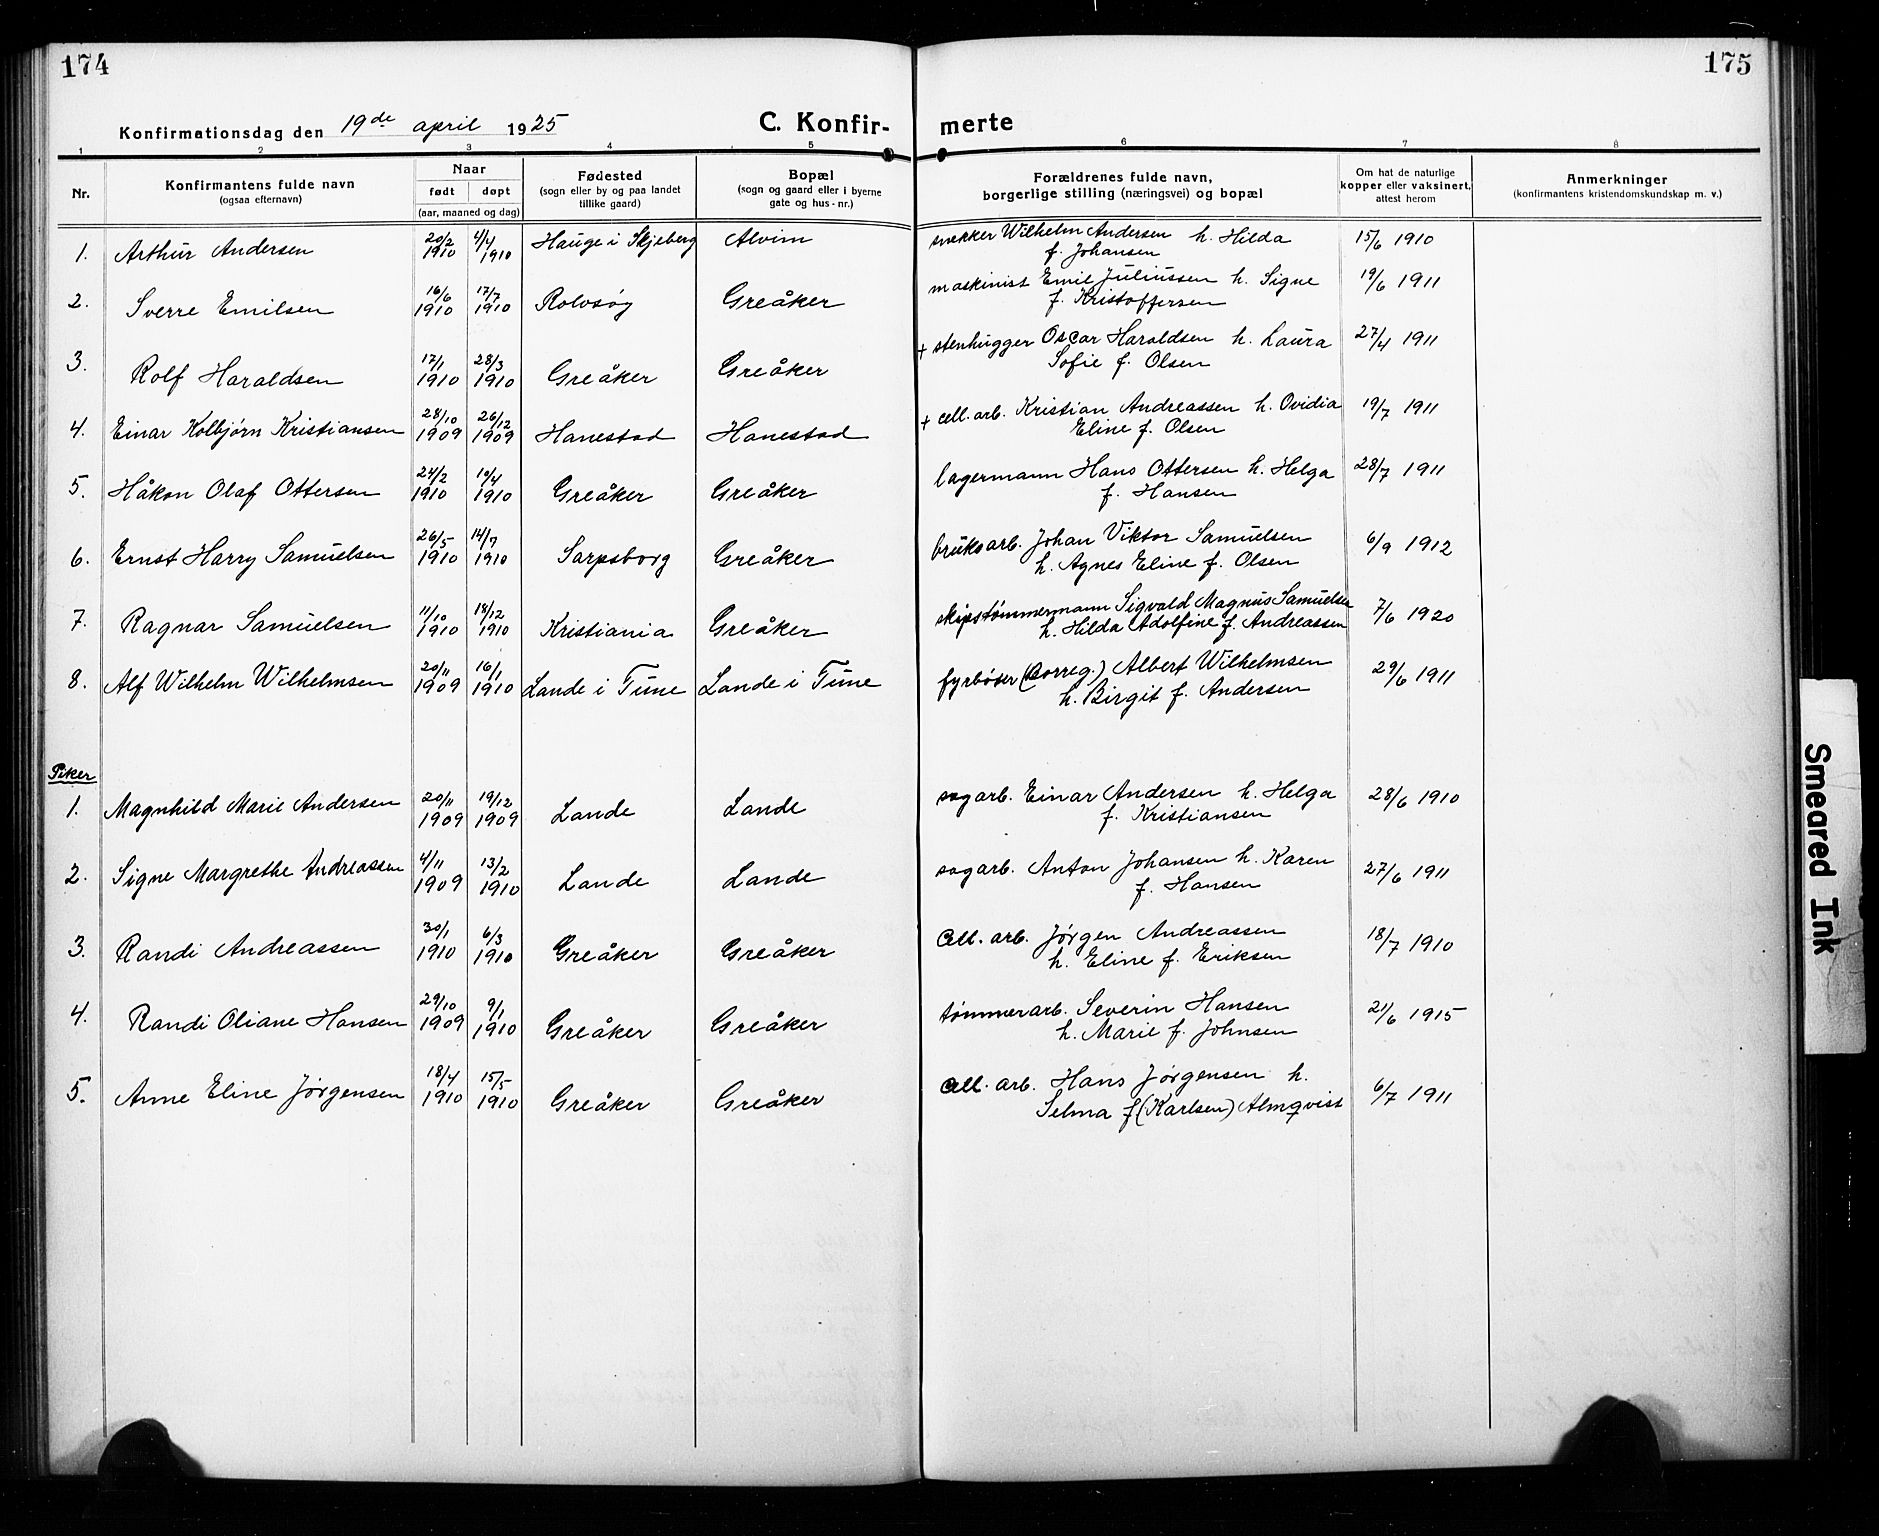 174
175
Konfirmationsdag den 19de april 1925
C. Konfirmerte
1 2 3 4 5 6 7 8
Nr. | Konfirmantens fulde navn (ogsaa efternavn) | Naar født døpt (aar, maaned og dag) | Fødested (sogn eller by og paa landet tillike gaard) | Bopæl (sogn og gaard eller i byerne gate og hus-nr.) | Forældrenes fulde navn, borgerlige stilling (næringsvei) og bopæl | Om hat de naturlige kopper eller vaksinert, attest herom | Anmerkninger (konfirmantens kristendomskundskap m. v.)
1. Arthur Andersen 20/2 1910 4/4 1910 Hauge i Skjeberg Alvim snekker Wilhelm Andersen h. Hilda f. Johansen 15/6 1910
2. Sverre Emilsen 16/6 1910 17/7 1910 Rolvsøy Greåker maskinist Emil Juliussen h. Signe f. Kristoffersen 19/6 1911
3. Rolf Haraldsen 17/1 1910 28/3 1910 Greåker Greåker + stenhugger Oscar Haraldsen h. Laura Sofie f. Olsen 27/4 1911
4. Einar Kolbjørn Kristiansen 28/10 1909 26/12 1909 Hanestad Hanestad + cell. arb. Kristian Andreassen h. Ovidia Eline f. Olsen 19/7 1911
5. Håkon Olaf Ottersen 24/2 1910 10/4 1910 Greåker Greåker lagermann Hans Ottersen h. Helga f. Hansen 28/7 1911
6. Ernst Harry Samuelsen 26/5 1910 14/7 1910 Sarpsborg Greåker bruksarb. Johan Viktor Samuelsen h. Agnes Eline f. Olsen 6/9 1912
7. Ragnar Samuelsen 11/10 1910 18/12 1910 Kristiania Greåker skipstømmermann Sigvald Magnus Samuelsen h. Hilda Adolfine f. Andreassen 7/6 1920
8. Alf Wilhelm Wilhelmsen 20/11 1909 16/1 1910 Lande i Tune Lande i Tune fyrbøter (Borreg.) Albert Wilhelmsen h. Birgit f. Andersen 29/6 1911
Piker
1. Magnhild Marie Andersen 20/11 1909 19/12 1909 Lande Lande sagarb. Einar Andersen h. Helga f. Kristiansen 28/6 1910
2. Signe Margrethe Andreassen 4/11 1909 13/2 1910 Lande Lande sagarb. Anton Johansen h. Karen f. Hansen 27/6 1911
3. Randi Andreassen 30/1 1910 6/3 1910 Greåker Greåker Cell. arb. Jørgen Andreassen h. Eline f. Eriksen 18/7 1910
4. Randi Oliane Hansen 29/10 1909 9/1 1910 Greåker Greåker tømmerarb. Severin Hansen h. Marie f. Johnsen 21/6 1915
5. Anne Eline Jørgensen 18/4 1910 15/5 1910 Greåker Greåker Cell. arb. Hans Jørgensen h. Selma f (Karlsen) Almqvist 6/7 1911
Smeared Ink